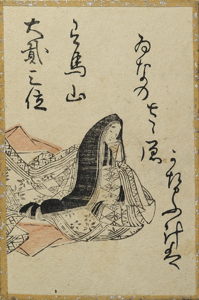 大貳三位
有馬山
ゐなのさゝ原
かせふけは